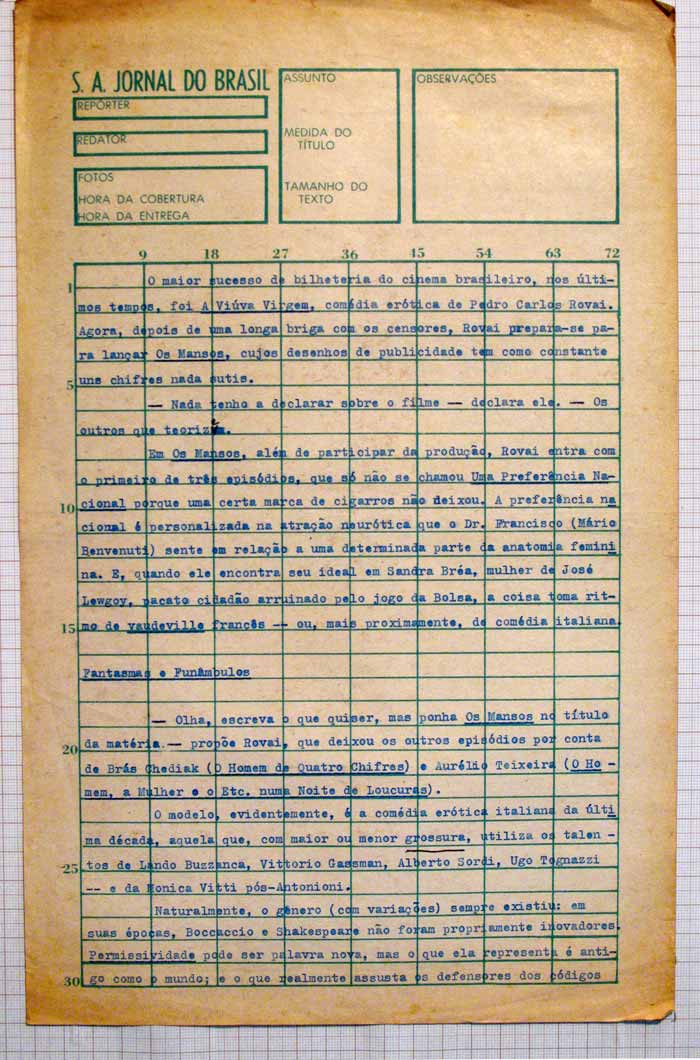 S. A. JORNAL DO BRASIL
REPÓRTER
REDATOR
FOTOS
HORA DA COBERTURA
HORA DA ENTREGA
ASSUNTO
MEDIDA DO
TÍTULO
TAMANHO DO
TEXTO
OBSERVAÇÕES
9 18 27 36 45 54 63 72
1
O maior sucesso de bilheteria do cinema brasileiro, nos últi-
mos tempos, foi A Viúva Virgem, comédia erótica de Pedro Carlos Rovai.
Agora, depois de uma longa briga com os censores, Rovai prepara-se pa-
ra lançar Os Mansos, cujos desenhos de publicidade tem como constante
5 uns chifres nada sutis.
— Nada tenho a declarar sobre o filme — declara ele. — Os
outros que teorizem.
Em Os Mansos, além de participar da produção, Rovai entra com
o primeiro de três episódios, que só não se chamou Uma Preferência Na-
10 cional porque uma certa marca de cigarros não deixou. A preferência na
cional é personalizada na atração neurótica que o Dr. Francisco (Mário
Benvenuti) sente em relação a uma determinada parte da anatomia femini
na. E, quando ele encontra seu ideal em Sandra Bréa, mulher de José
Lewgoy, pacato cidadão arruinado pelo jogo da Bolsa, a coisa toma rit-
15 mo de vaudeville francês -- ou, mais proximamente, de comédia italiana.
Fantasmas e Funâmbulos
— Olha, escreva o que quiser, mas ponha Os Mansos no título
20 da matéria.— propõe Rovai, que deixou os outros episódios por conta
de Brás Chediak (O Homem de Quatro Chifres) e Aurélio Teixeira (O Ho -
mem, a Mulher e o Etc. numa Noite de Loucuras).
O modelo, evidentemente, é a comédia erótica italiana da últi
ma década, aquela que, com maior ou menor grossura, utiliza os talen -
25 tos de Lando Buzzanca, Vittorio Gassman, Alberto Sordi, Ugo Tognazzi
-- e da Monica Vitti pós-Antonioni.
Naturalmente, o gênero (com variações) sempre existiu: em
suas épocas, Boccaccio e Shakespeare não foram propriamente inovadores.
Permissividade pode ser palavra nova, mas o que ela representa é anti-
30 go como o mundo; e o que realmente assusta os defensores dos códigos